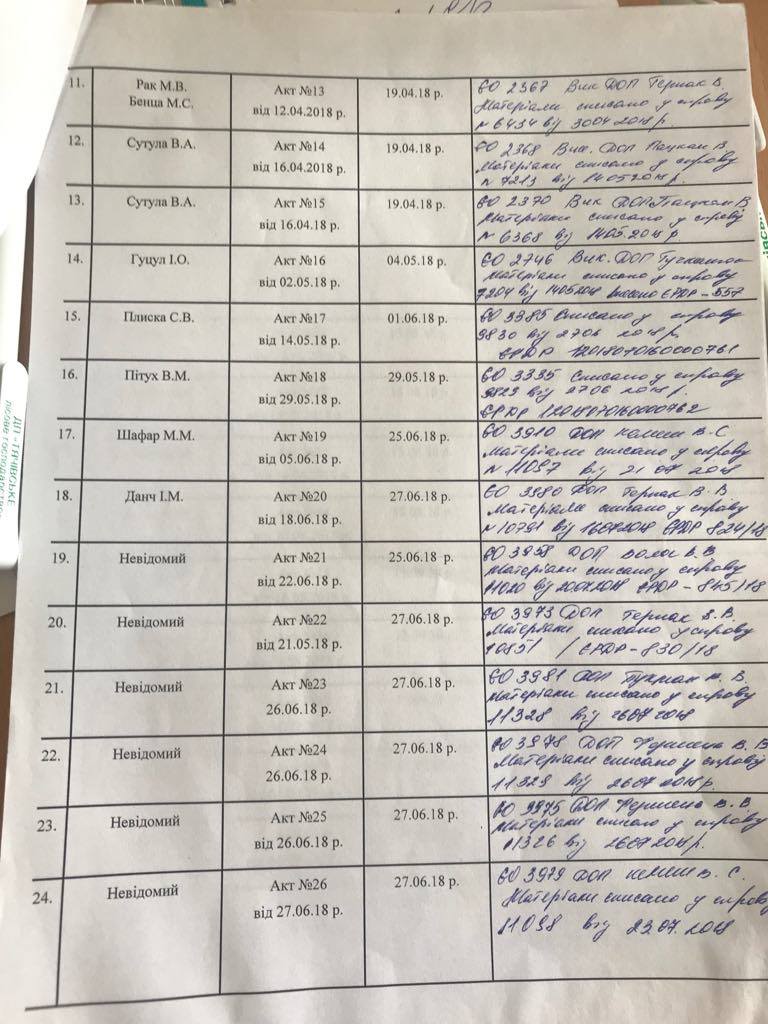 11.
Рак М.В.
Бенца М.С.
Акт №13
від 12.04.2018 р.
19.04.18 р.
ЄО 2367 Вик ДОП Герпак В.
Матеріали списано у справу
№ 6434 від 3004 2018 р.
12.
Сутула В.А.
Акт №14
від 16.04.2018 р.
19.04.18 р.
ЄО 2368 Вик. ДОП Пацкан В.
Матеріали списано у справу
№ 7213 від 14052018 р.
13.
Сутула В.А.
Акт №15
від 16.04.2018 р.
19.04.18 р.
ЄО 2370 Вик ДОП Пацкан В
Матеріали списано у справу
№ 6368 від 1405.2018 р
14.
Гуцул І.О.
Акт №16
від 02.05.18 р.
04.05.18 р.
ЄО 2746 Вик. ДОП
Матеріали списано у справу
7204 від 14052018 внесено ЄРДР - 557
15.
Плиска С.В.
Акт №17
від 14.05.18 р.
01.06.18 р.
ЄО 3385 Списано у справу
9830 від 2706 2018 р.
ЄРДР 12018070160000761
16.
Пітух В.М.
Акт №18
від 29.05.18 р.
29.05.18 р.
ЄО 3335 Списано у справу
9829 від 2706 2018 р.
ЄРДР 12018070160000762
17.
Шафар М.М.
Акт №19
від 05.06.18 р.
25.06.18 р.
ЄО 3910 ДОП Келеш В.С
Матеріали списано у справу
№ 11097 від 21 07 2018
18.
Данч І.М.
Акт №20
від 18.06.18 р.
27.06.18 р.
ЄО 3980 ДОП Герпак В.В
Матеріали списано у справу
№ 10791 від 16072018 ЄРДР 824/18
19.
Невідомий
Акт №21
від 22.06.18 р.
25.06.18 р.
ЄО 3958 ДОП Волос В.В
Матеріали списано у справу
11020 від 20.072018 ЄРДР - 845/18
20.
Невідомий
Акт №22
від 21.05.18 р.
27.06.18 р.
ЄО 3973 ДОП Герпак В.В.
Матеріали списано у справу
10851 / ЄРДР - 830/18
21.
Невідомий
Акт №23
26.06.18 р.
27.06.18 р.
ЄО 3981 ДОП В.
Матеріали списано у справу
11328 від 2607 2018
22.
Невідомий
Акт №24
26.06.18 р.
27.06.18 р.
ЄО 3978 ДОП В. В
Матеріали списано у справу
11329 від 2607 2018 р.
23.
Невідомий
Акт №25
від 26.06.18 р.
27.06.18 р.
ЄО 3975 ДОП В. В.
Матеріали списано у справу
11326 від 26072018 р.
24.
Невідомий
Акт №26
від 27.06.18 р.
27.06.18 р.
ЄО 3979 ДОП Келеш В. С.
Матеріали списано у справу
11098 від 23.07.2018
ДП «ТЯЧІВСЬКЕ
лісове господарство